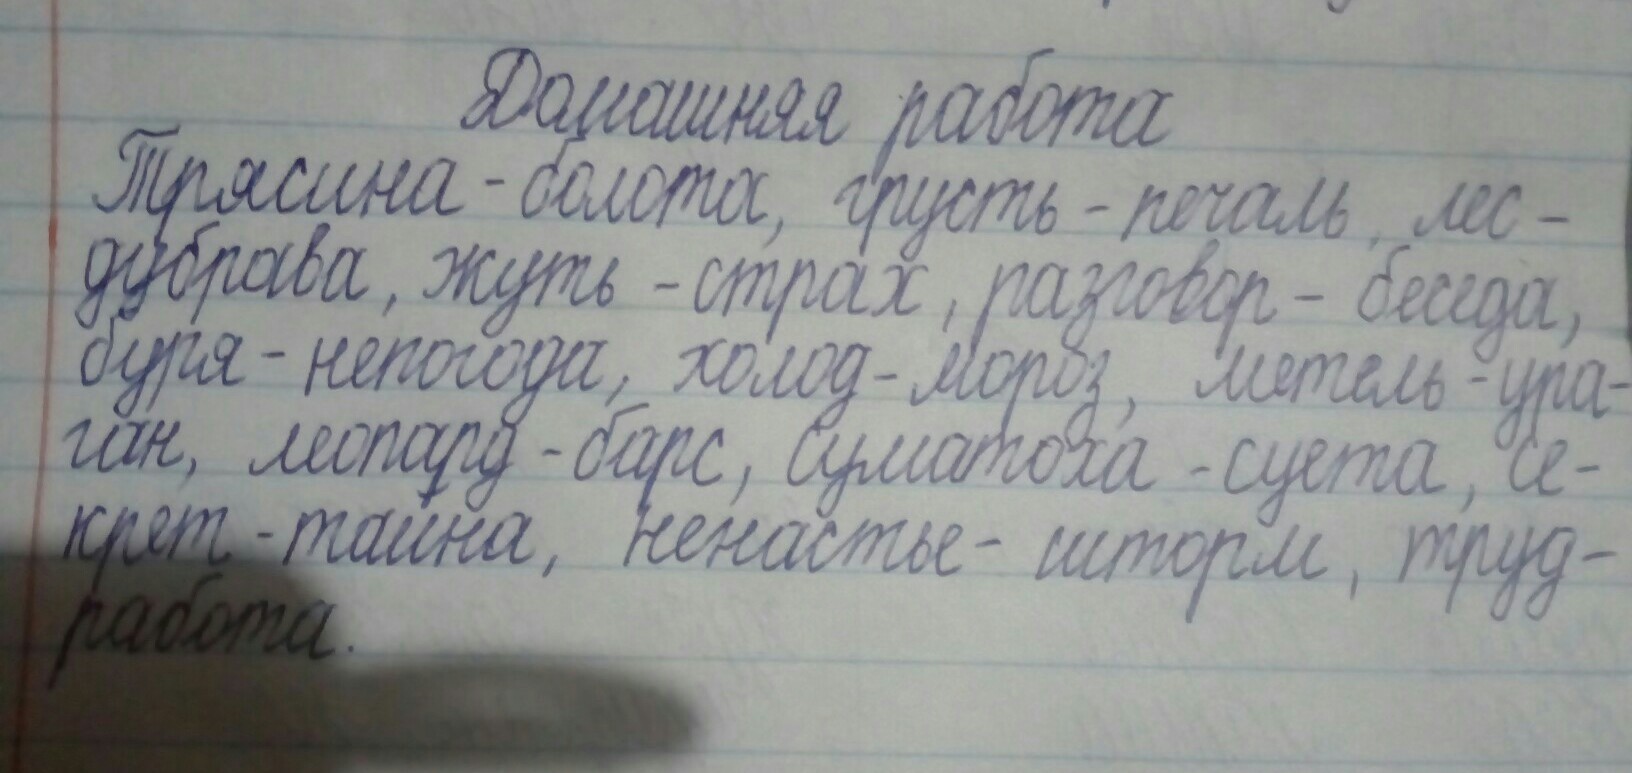 Домашняя работа
Трясина - болота, грусть - печаль, лес -
дубрава, жуть - страх, разговор - беседа,
буря - непогода, холод - мороз, метель - ура-
ган, леопард - барс, суматоха - суета, се-
крет - тайна, ненастье - шторм, труд -
работа.